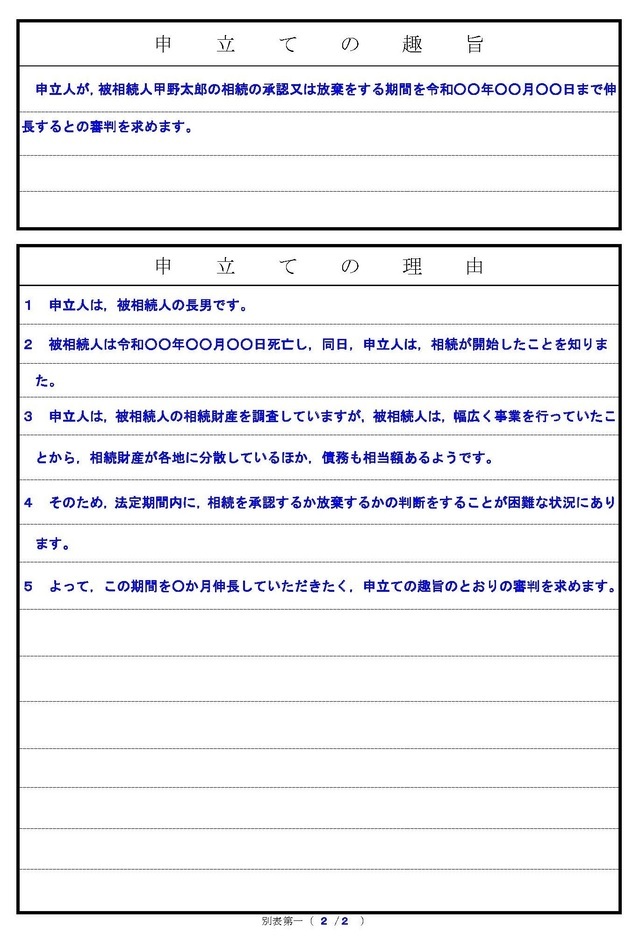 申立ての趣旨
申立人が，被相続人甲野太郎の相続の承認又は放棄をする期間を令和〇〇年〇〇月〇〇日まで伸
長するとの審判を求めます。
申立ての理由
１　申立人は，被相続人の長男です。
２　被相続人は令和〇〇年〇〇月〇〇日死亡し，同日，申立人は，相続が開始したことを知りま
た。
３　申立人は，被相続人の相続財産を調査していますが，被相続人は，幅広く事業を行っていたこ
とから，相続財産が各地に分散しているほか，債務も相当額あるようです。
４　そのため，法定期間内に，相続を承認するか放棄するかの判断をすることが困難な状況にあり
ます。
５　よって，この期間を〇か月伸長していただきたく，申立ての趣旨のとおりの審判を求めます。
別表第一（ 2 /2 ）